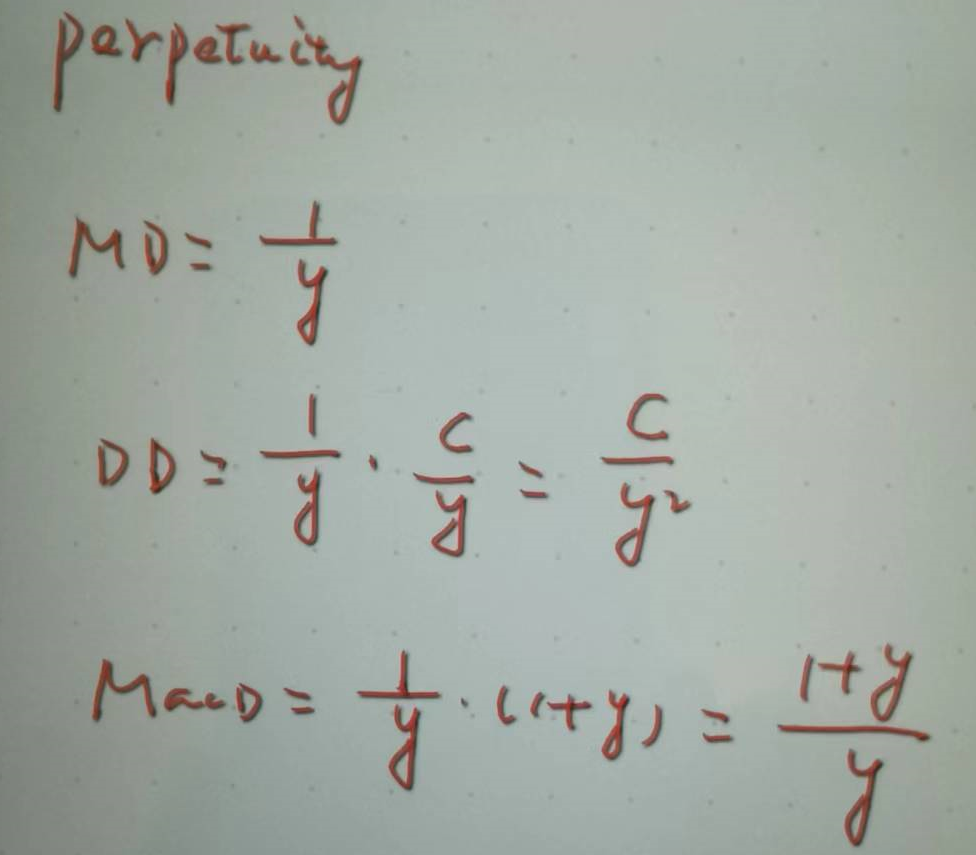 perpetuity
MD = 1/y
DD = 1/y · C/y = C/y²
MacD = 1/y · (1+y) = (1+y)/y